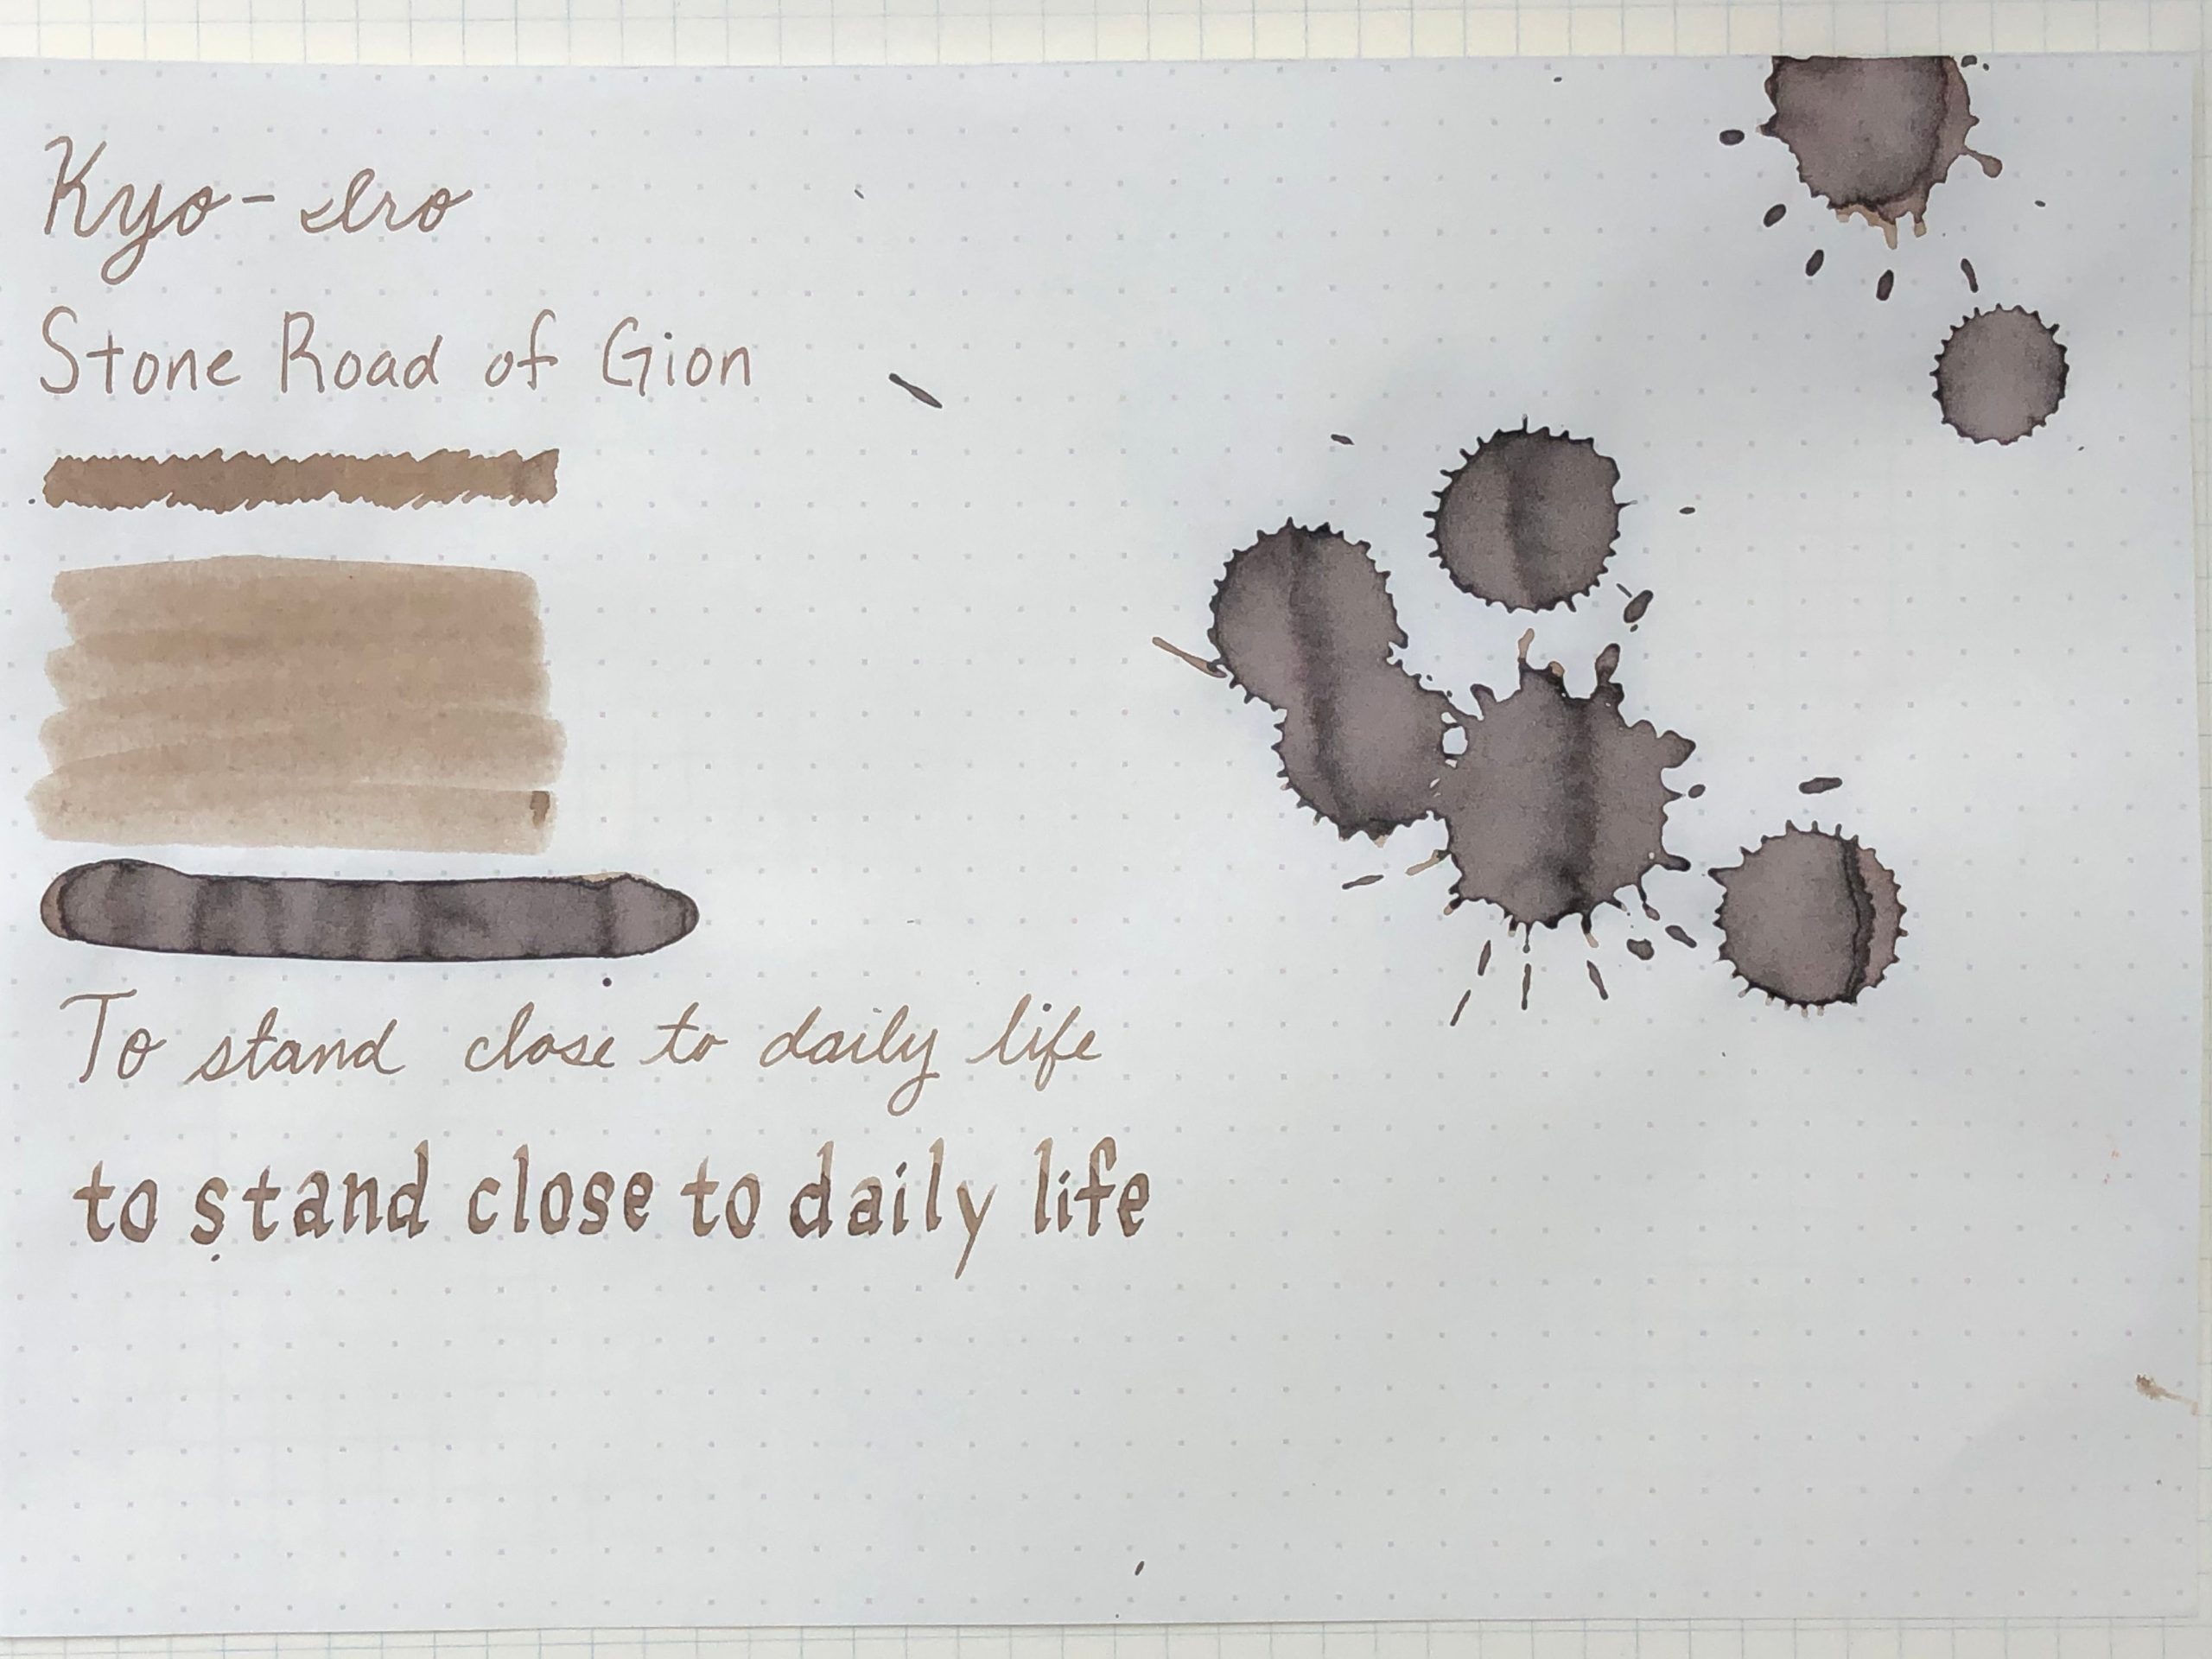 Kyo-Iro
Stone Road of Gion
To stand close to daily life
to stand close to daily life